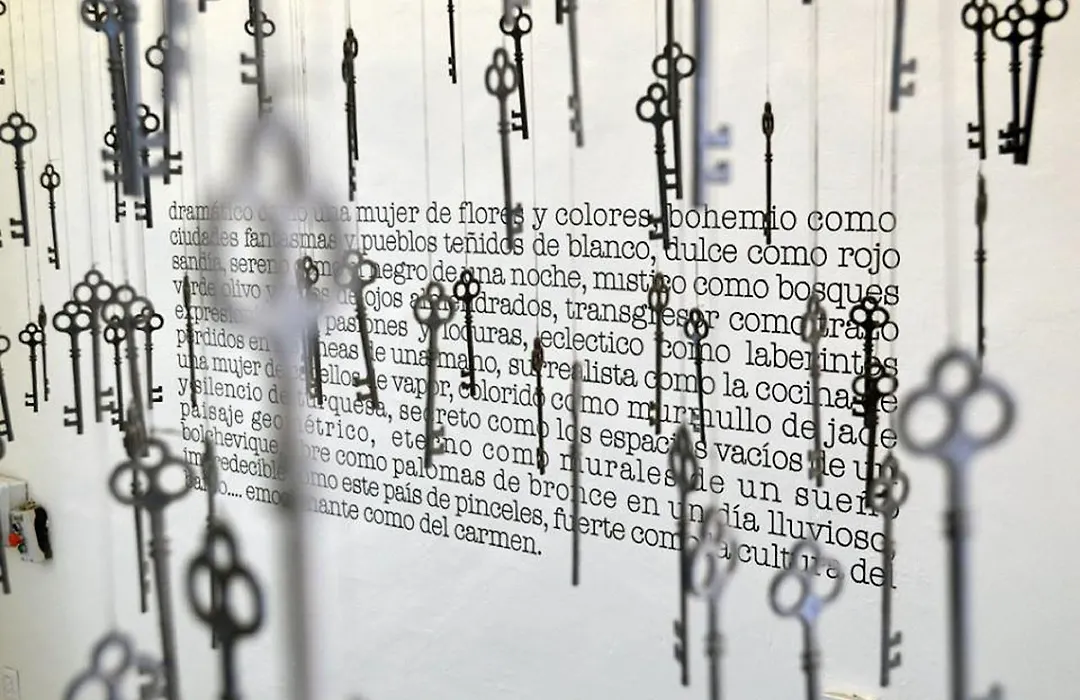 dramático como una mujer de flores y colores, bohemio como
ciudades fantasmas y pueblos teñidos de blanco, dulce como rojo
sandía, sereno como negro de una noche, mistico como bosques
verde olivo y de ojos almendrados, transgresor como trazo
pasiones y locuras, eclectico como laberintos
perdidos en líneas de una mano, surrealista como la cocina de
una mujer de cabellos de vapor, colorido como murmullo de jade
y silencio de turquesa, secreto como los espacios vacíos de un
paisaje geométrico, eterno como murales de un sueño
bolchevique libre como palomas de bronce en un día lluvioso,
impredecible como este país de pinceles, fuerte como la cultura del
emocionante como del carmen.